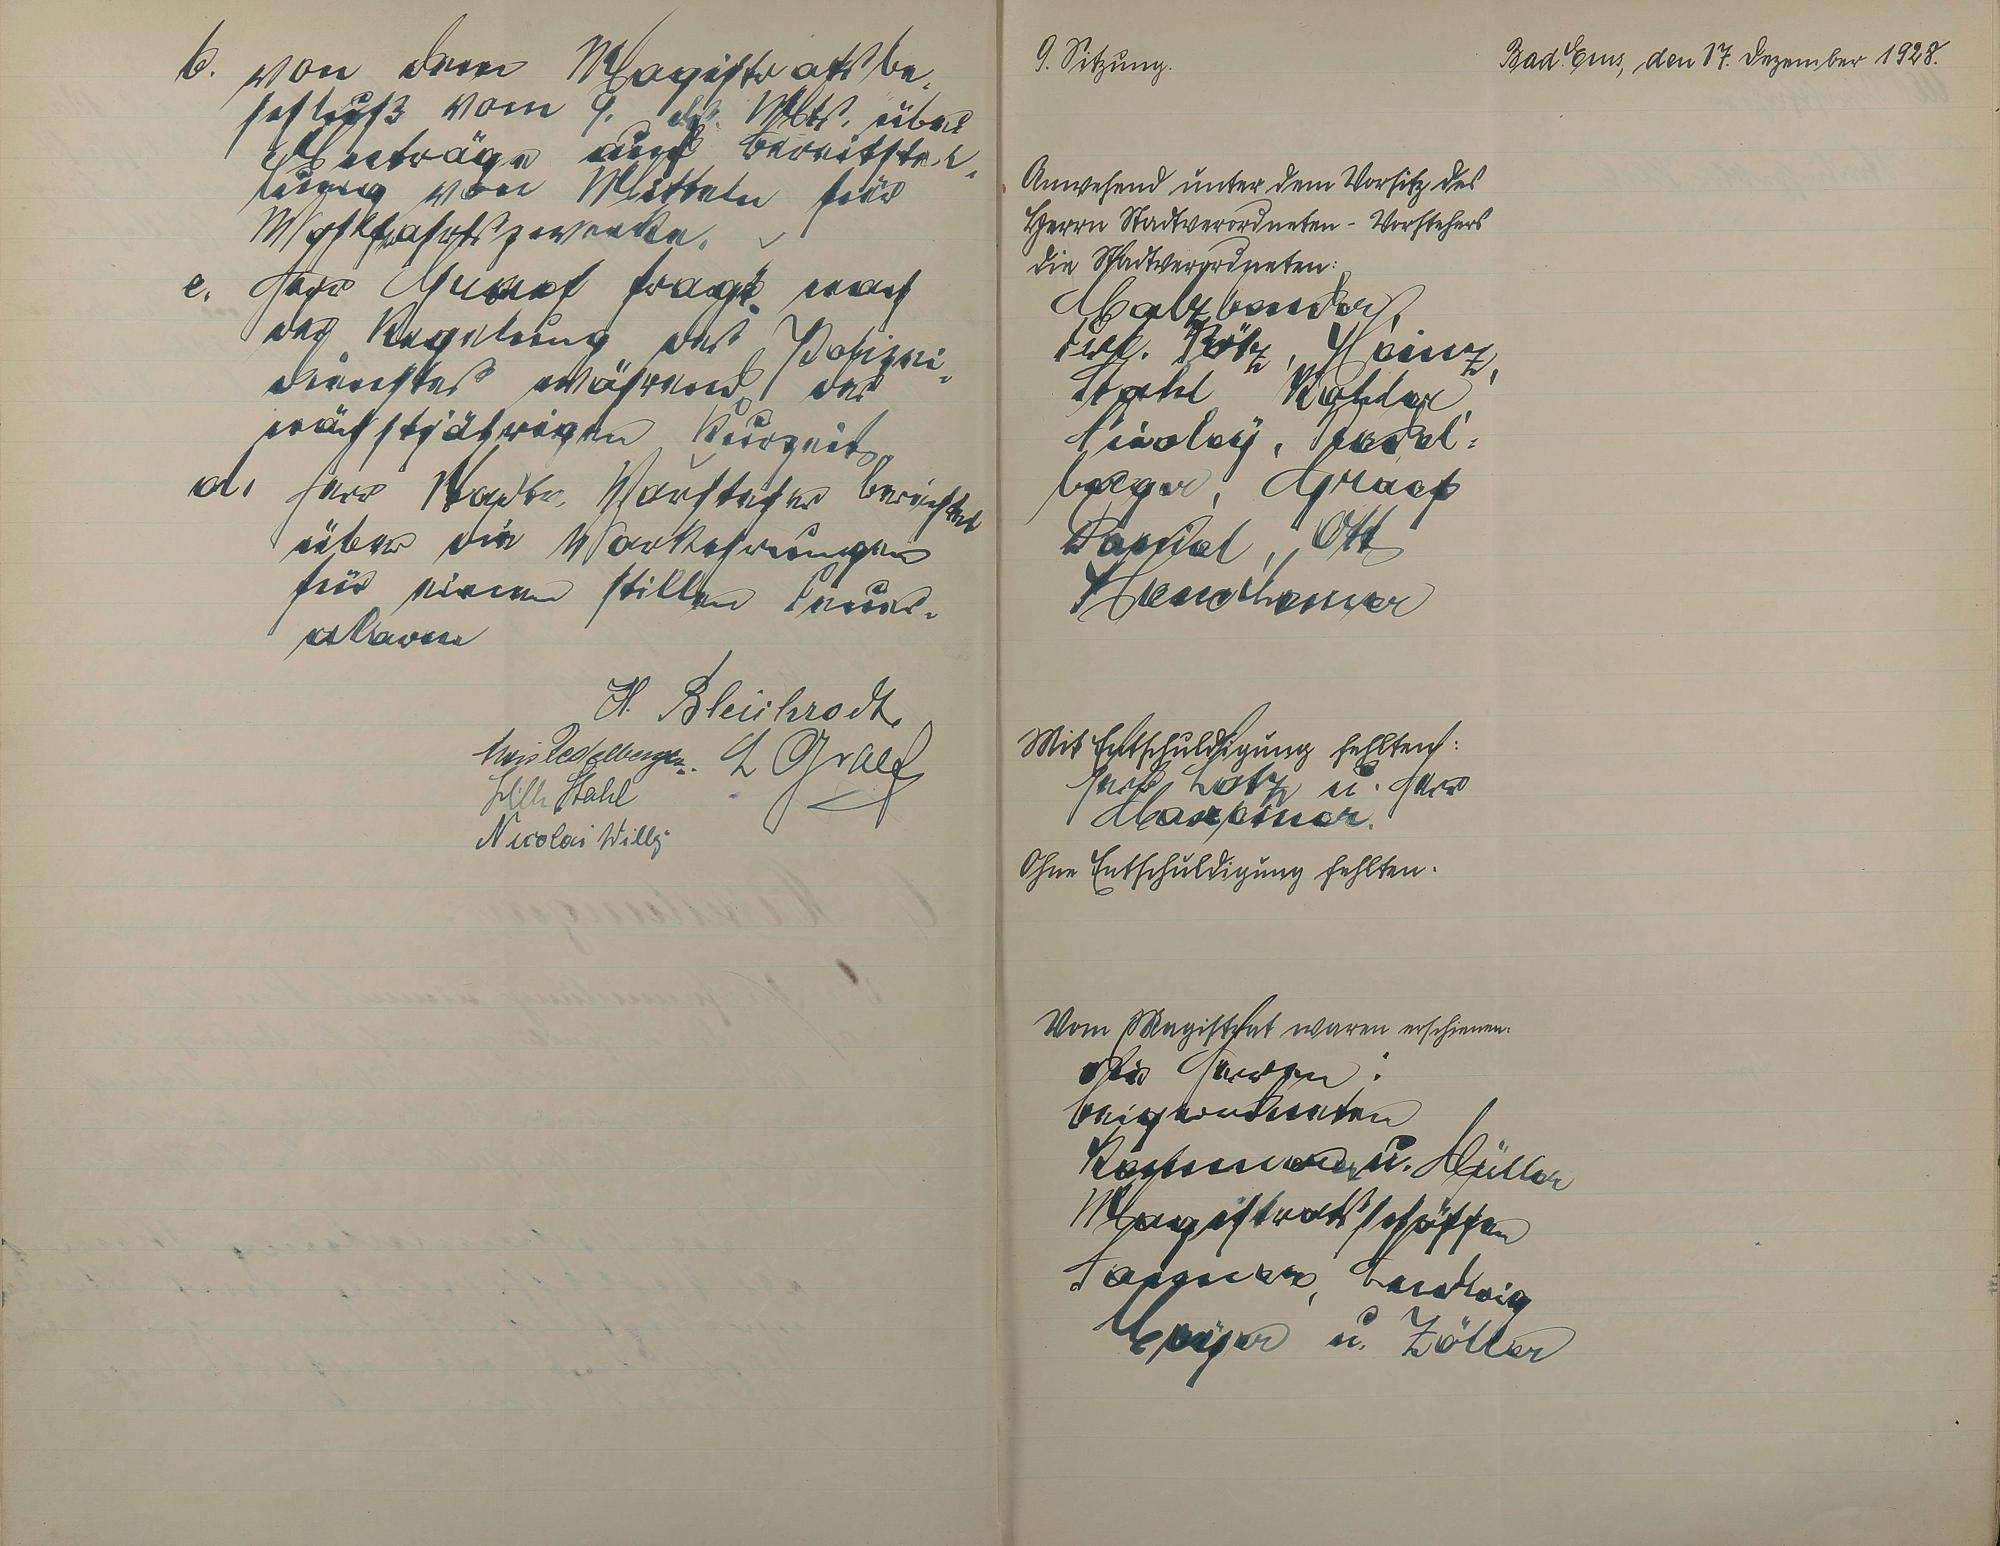 b. von dem Magistratsbe-
schluß vom 9. ds. Mts. über
Anträge auf Bereitstel-
lung von Mitteln für
Wohlfahrtszwecke.
c. Herr Graef fragt nach
der Regelung des Polizei-
dienstes während der
nächstjährigen Kurzeit.
d. Herr Stadtv. Vorsteher berichtet
über die Vorkehrungen
für einen stillen Feuer-
alarm
H. Bleichrodt.
Redelberger. L Graef
Stahl
Nicolai Willy
9. Sitzung. Bad Ems, den 17. Dezember 1928.
Anwesend unter dem Vorsitz des
Herrn Stadtverordneten-Vorstehers
die Stadtverordneten:
Malzbender,
Heinz,
Stahl
Nicolay, Redel-
berger, Graef
Daniel, Ott
Mit Entschuldigung fehlten:
Herr Lotz u. Herr
Ohne Entschuldigung fehlten:
Vom Magistrat waren erschienen:
die Herren:
Beigeordneten
u. Müller
Magistratsschöffen
Ludwig
u. Zöller